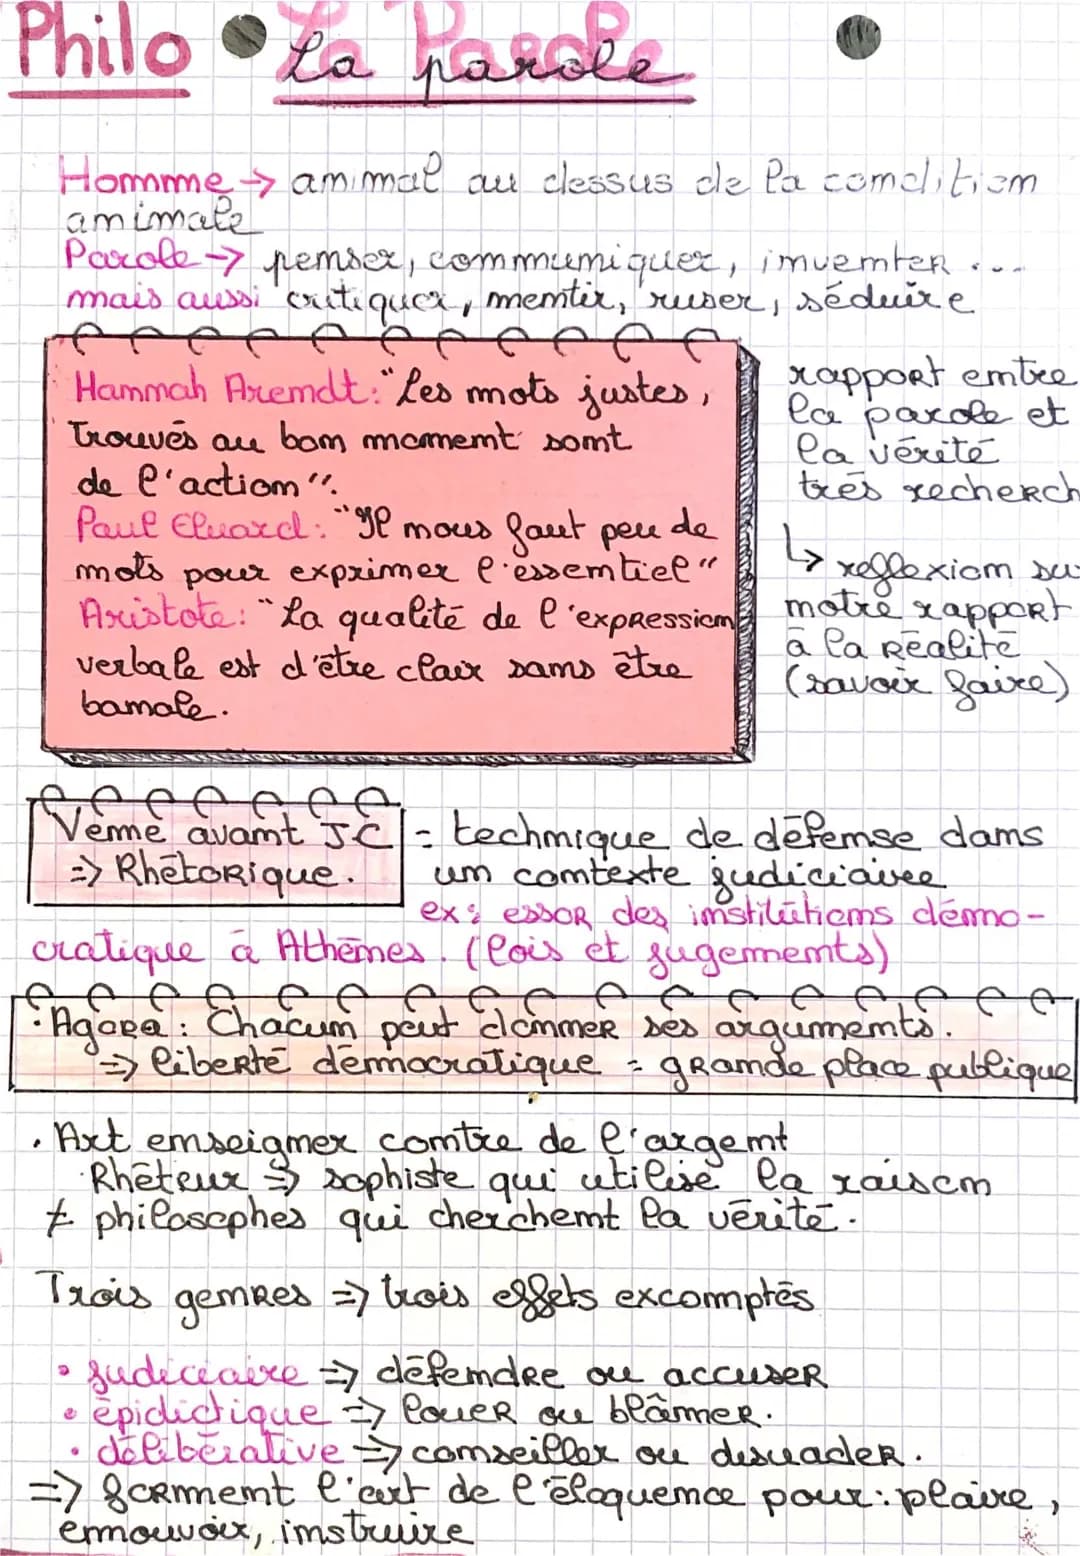 Philo • La Parole
Homme → animal au dessus de la condition
animale
Parole → penser, communiquer, inventer ...
mais aussi critiquer, mentir, ruser, séduire
Hannah Arendt : "Les mots justes,
trouvés au bon moment sont
de l'action".
Paul Eluard : "Il nous faut peu de
mots pour exprimer l'essentiel"
Aristote : "La qualité de l'expression
verbale est d'être clair sans être
banale.
rapport entre
la parole et
la vérité
très recherch
↳ reflexion su
notre rapport
à la réalité
(savoir faire)
Vème avant JC
=> Rhétorique.
= technique de défense dans
un contexte judiciairee
ex : essor des institutions démo-
cratique à Athènes. (lois et jugements)
• Agora : Chacun peut donner ses arguments.
=> liberté démocratique = grande place publique
. Art enseigner contre de l'argent
. Rhéteur => sophiste qui utilise la raison
≠ philosophes qui cherchent la vérité.
Trois genres => trois effets excomptés
• judiciaire => défendre ou accuser
• épidictique => louer ou blâmer.
• délibérative => conseiller ou disuader.
=> forment l'art de l'éloquence pour : plaire,
emouvoir, instruire